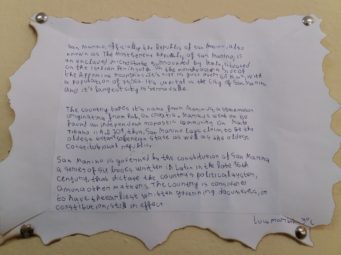 San Marino officially the Republic of San Marino, also
known as the Most Serene Republic of San Marino, is
an enclaved microstate surrounded by Italy, situated
on the Italian Peninsula on the northeastern side of
the Apennine mountains. Its size is just over 61 km², with
a population of its capital is the City of San Marino
and it's largest city is Serravalle.
The country takes it's name from Marinus, a stonemason
originating from Rab, in Croatia. Marinus went on to
found an independent monastic community on Monte
Titano in A.D. 301 thus, San Marino lays claim to be the
oldest extant sovereign state as well as the oldest
Constitutional republic.
San Marino is governed by the constitution of San Marino
a series of six books written in Latin in the late 16th
Century, that dictate the country's political system,
among other matters. The country is considered
to have the earliest written governing documents, or
constitution, still in effect.